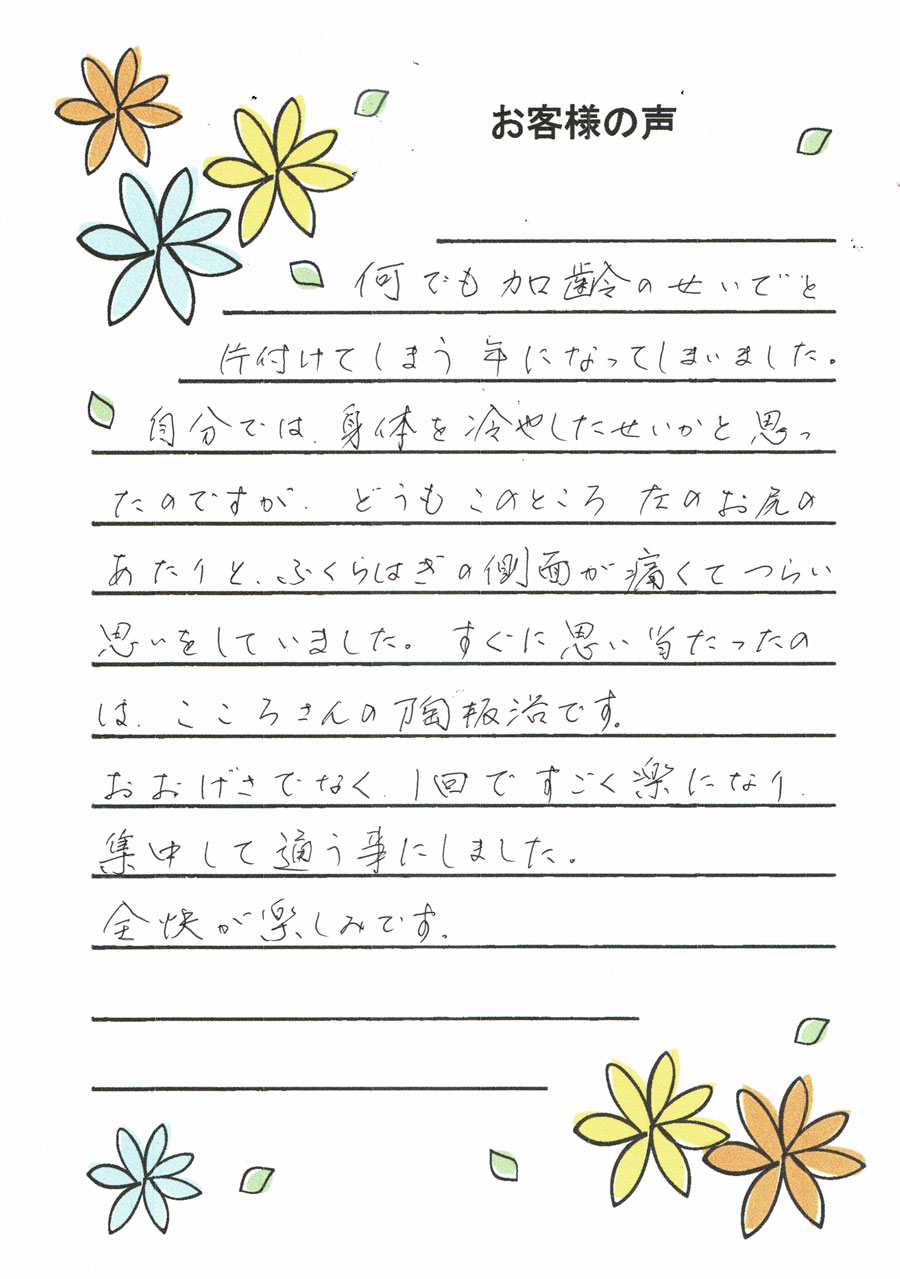 お客様の声
何でも加齢のせいでと
片付けてしまう年になってしまいました。
自分では、身体を冷やしたせいかと思っ
たのですが、どうもこのところ左のお尻の
あたりと、ふくらはぎの側面が痛くてつらい
思いをしていました。すぐに思い当たったの
は、こころさんの陶板浴です。
おおげさでなく、1回ですごく楽になり、
集中して通う事にしました。
全快が楽しみです。